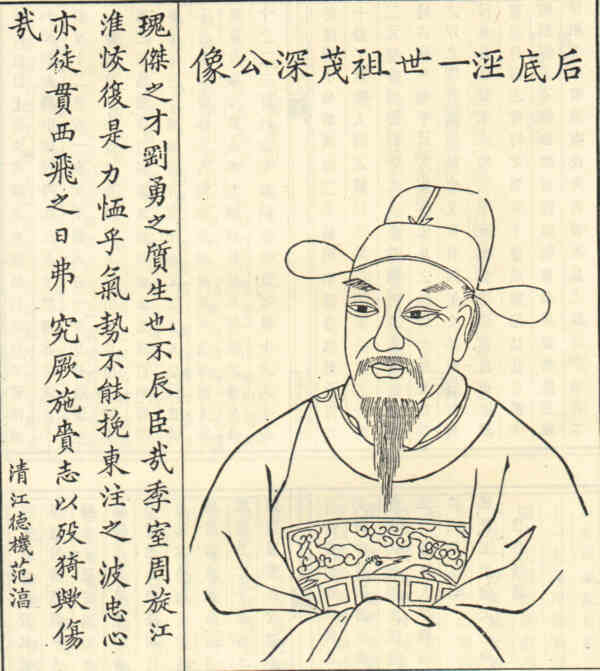 后底涇一世祖茂深公像
瑰傑之才剛勇之質生也不辰臣哉季室周旋江
淮恢復是力恤乎氣勢不能挽東注之波忠心
亦徒貫西飛之日弗究厥施賫志以歿猗歟傷
哉
清江德機范